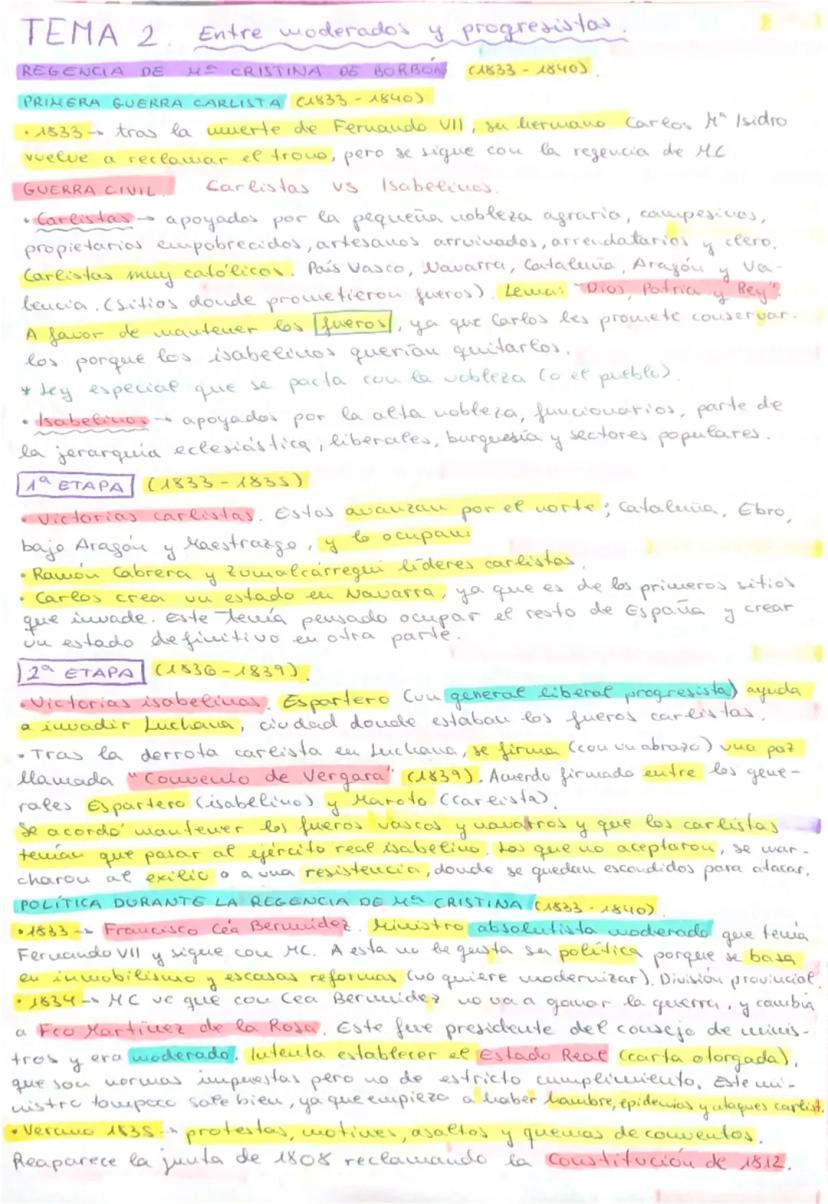 TEMA 2. Entre moderados y progresistas.
REGENCIA DE Mª CRISTINA DE BORBÓN (1833 - 1840).
PRIMERA GUERRA CARLISTA (1833 - 1840)
• 1833 → tras la muerte de Fernando VII, su hermano Carlos Mª Isidro
vuelve a reclamar el trono, pero se sigue con la regencia de MC
GUERRA CIVIL. Carlistas vs Isabelinos.
• Carlistas → apoyados por la pequeña nobleza agraria, campesinos,
propietarios empobrecidos, artesanos arruinados, arrendatarios y clero.
Carlistas muy católicos. País Vasco, Navarra, Cataluña, Aragón y Va-
lencia. (sitios donde prometieron fueros). Lema: "Dios, Patria y Rey".
A favor de mantener los fueros, ya que Carlos les promete conservar-
los porque los isabelinos querían quitarlos.
* Ley especial que se pacta con la nobleza (o el pueblo).
• Isabelinos → apoyados por la alta nobleza, funcionarios, parte de
la jerarquía eclesiástica, liberales, burguesía y sectores populares.
1ª ETAPA (1833 - 1835)
• Victorias carlistas. Estos avanzan por el norte; Cataluña, Ebro,
bajo Aragón y Maestrazgo, y lo ocupan.
• Ramón Cabrera y Zumalcárregui líderes carlistas.
• Carlos crea un estado en Navarra, ya que es de los primeros sitios
que invade. Este tenía pensado ocupar el resto de España y crear
un estado definitivo en otra parte.
2ª ETAPA (1836 - 1839).
• Victorias isabelinas. Espartero (un general liberal progresista) ayuda
a invadir Luchana, ciudad donde estaban los fueros carlistas.
• Tras la derrota carlista en Luchana, se firma (con un abrazo) una paz
llamada "Convenio de Vergara" (1839). Acuerdo firmado entre los gene-
rales Espartero (isabelino) y Maroto (carlista).
Se acordó mantener los fueros vascos y navarros y que los carlistas
tenían que pasar al ejército real isabelino. Los que no aceptaron, se mar-
charon al exilio o a una resistencia, donde se quedan escondidos para atacar.
POLÍTICA DURANTE LA REGENCIA DE Mª CRISTINA (1833 - 1840)
• 1833 → Francisco Cea Bermúdez. Ministro absolutista moderado que tenía
Fernando VII y sigue con MC. A esta no le gusta su política porque se basa
en inmobilismo y escasas reformas (no quiere modernizar). División provincial.
• 1834 → MC ve que con Cea Bermúdez no va a ganar la guerra, y cambia
a Fco Martínez de la Rosa. Este fue presidente del consejo de minis-
tros y era moderado. Intenta establecer el Estado Real (carta otorgada),
que son normas impuestas pero no de estricto cumplimiento. Este mi-
nistro tampoco sale bien, ya que empieza a haber hambre, epidemias y ataques carlist.
• Verano 1835 → protestas, motines, asaltos y quemas de conventos.
Reaparece la junta de 1808 reclamando la Constitución de 1812.